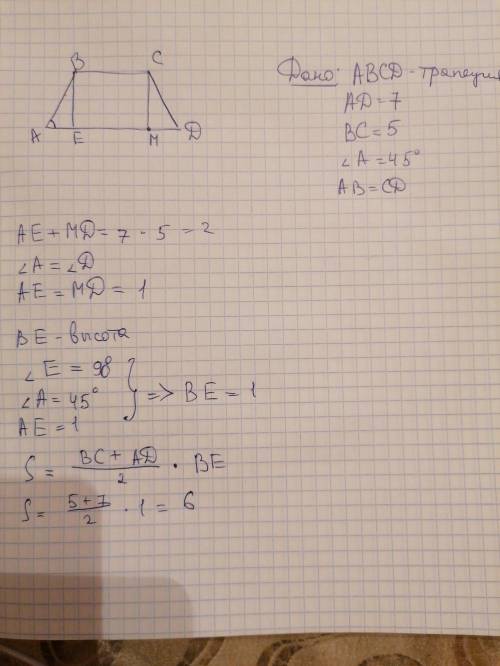 B C
A E M D
Дано: ABCD - трапеция
AD = 7
BC = 5
∠A = 45°
AB = CD
AE + MD = 7 - 5 = 2
∠A = ∠D
AE = MD = 1
BE - высота
∠E = 98
∠A = 45° } => BE = 1
AE = 1
S = BC + AD / 2 · BE
S = 5 + 7 / 2 · 1 = 6